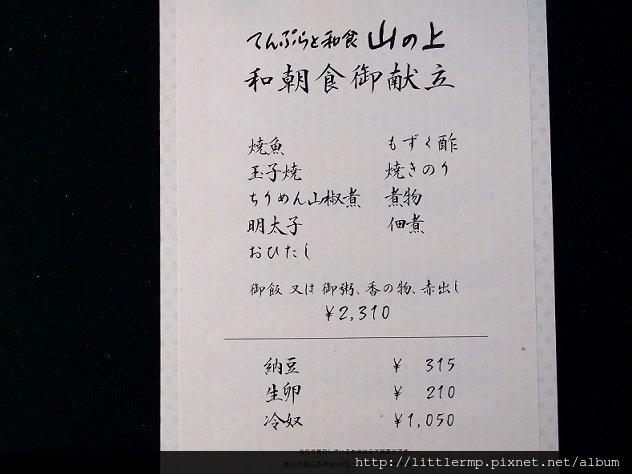 てんぷらと和食 山の上
和朝食御献立
焼魚 もずく酢
玉子焼 焼きのり
ちりめん山椒煮 煮物
明太子 佃煮
おひたし
御飯 又は 御粥、香の物、赤出し
¥2,310
納豆 ¥ 315
生卵 ¥ 210
冷奴 ¥1,050
http://littlermp.pixnet.net/album